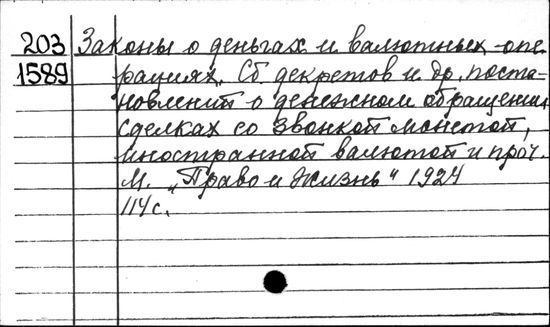 203 Законы о деньгах и валютных опе-
1589 рациях. Сб. декретов и др. поста-
новлений о денежном обращении,
сделках со звонкой монетой,
иностранной валютой и проч.
М. „Право и Жизнь" 1924
114 с.